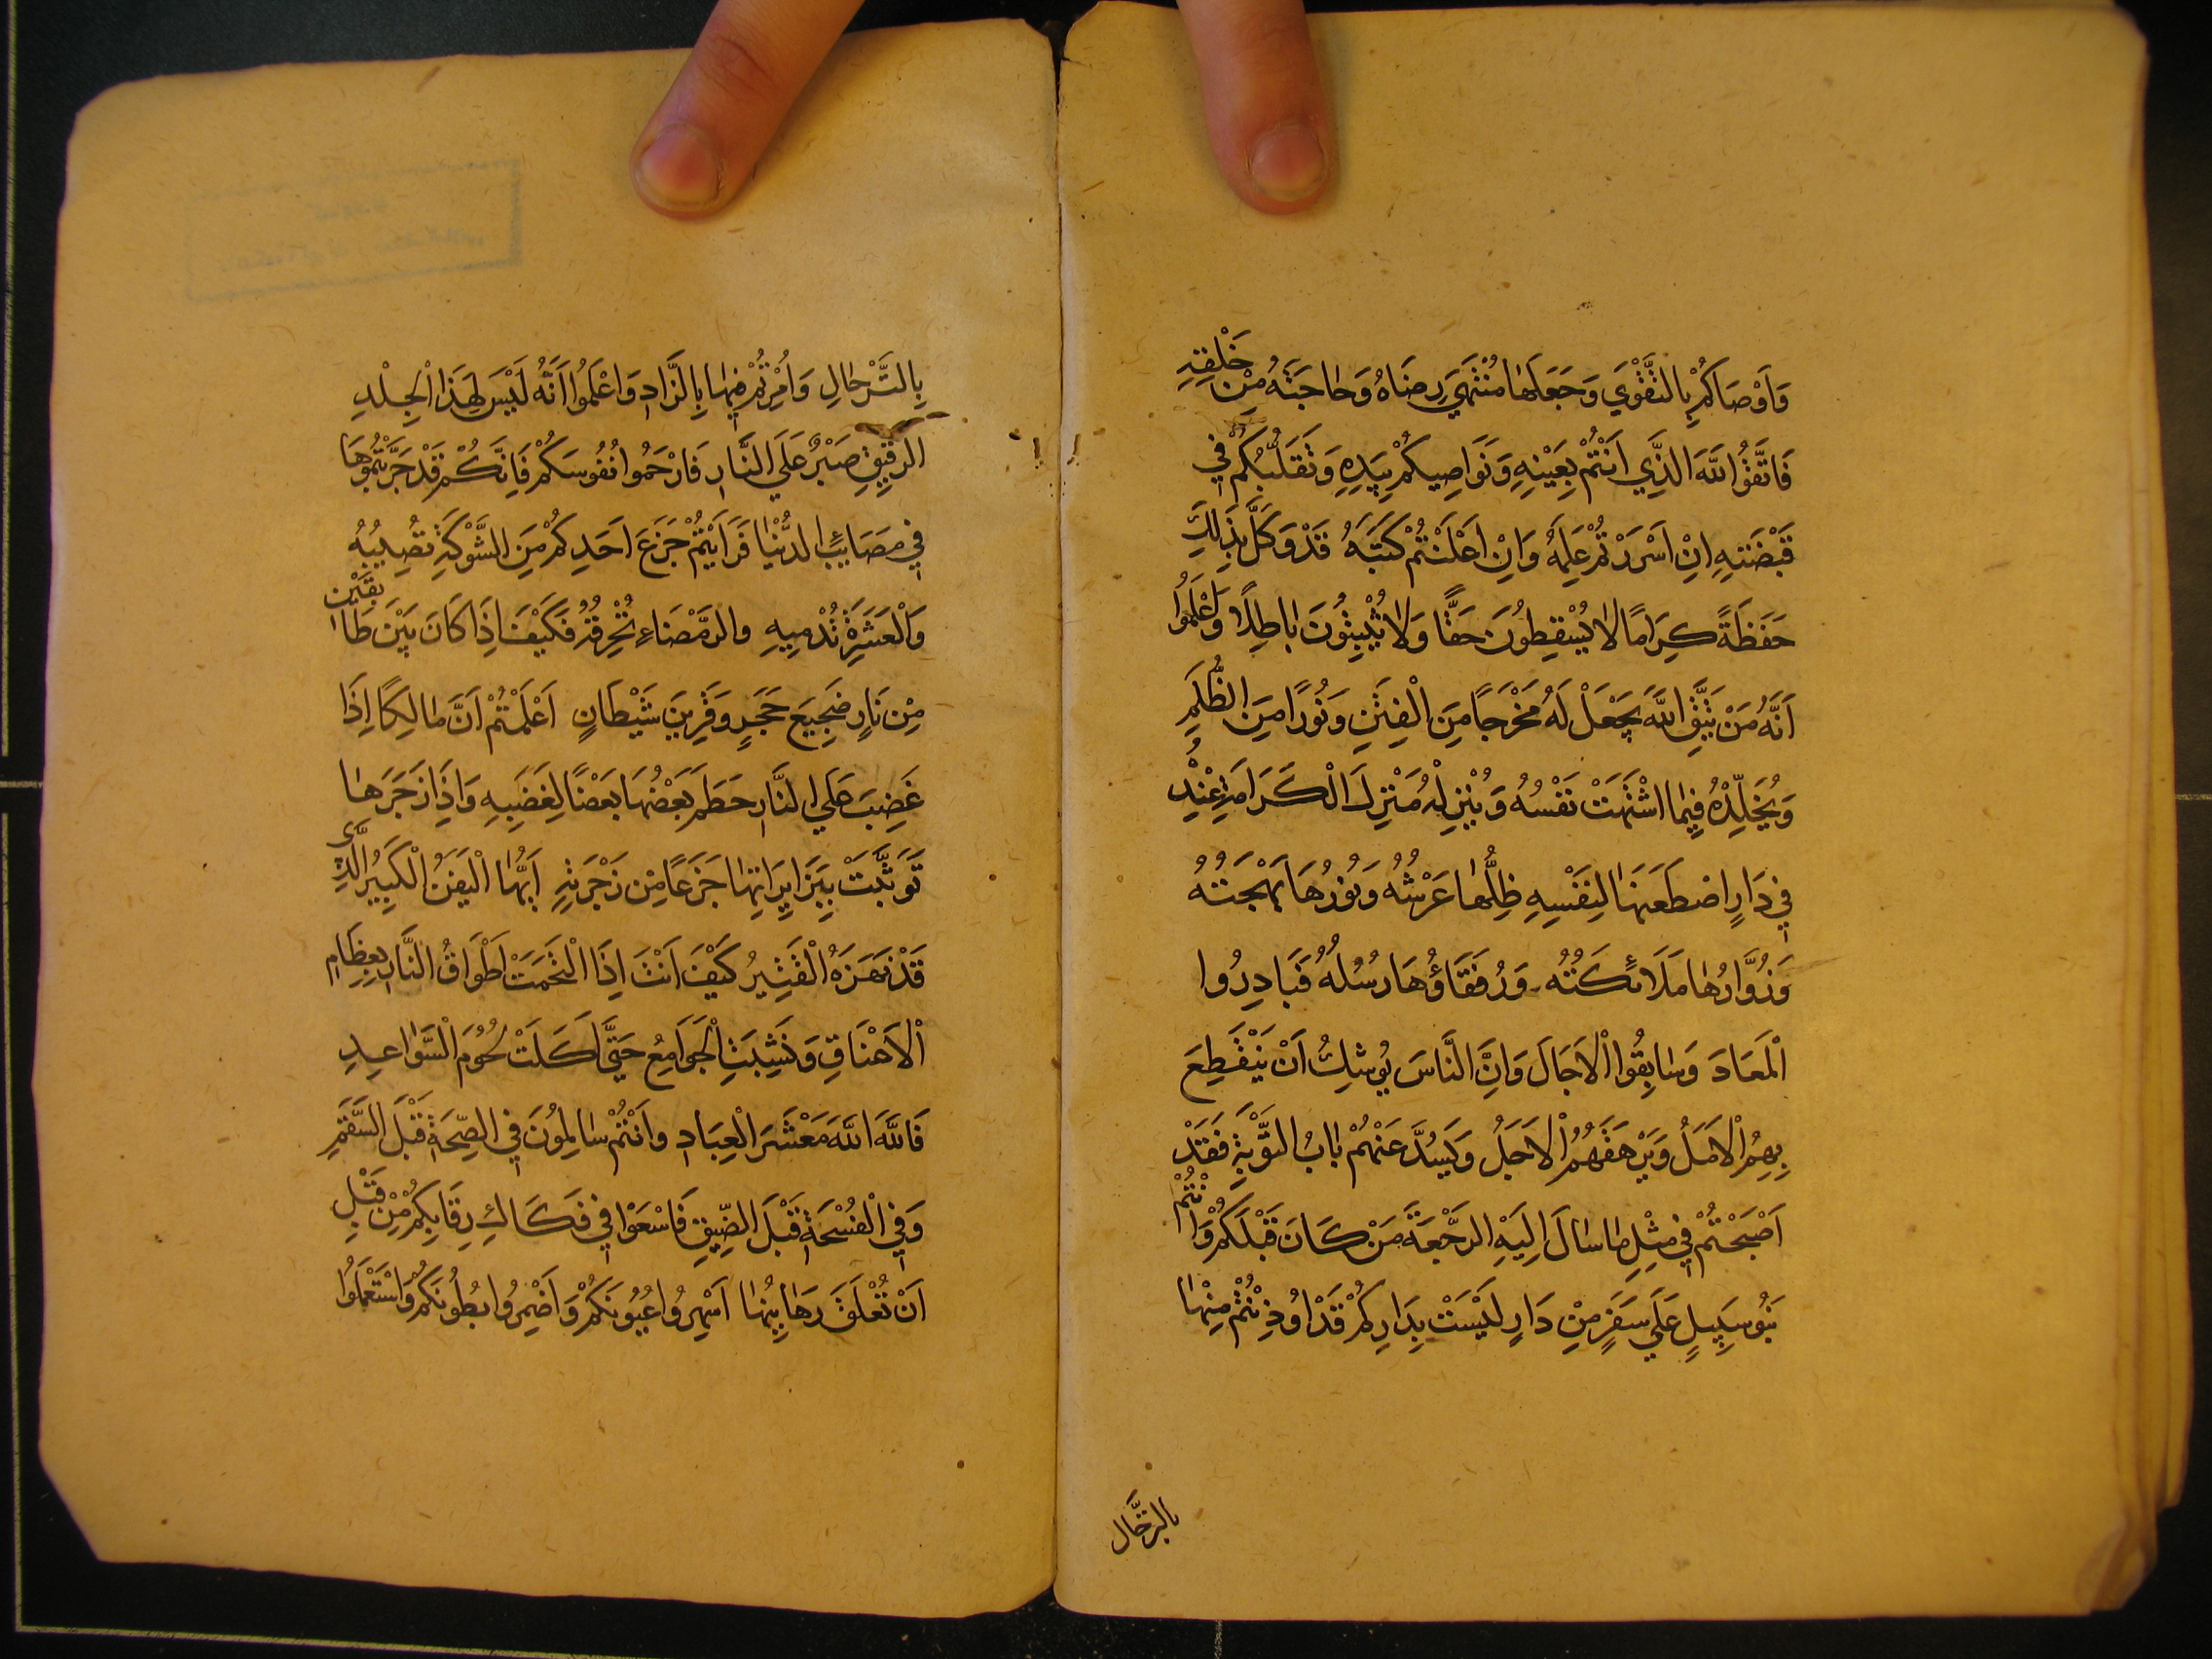 وَاَوْصَاكُمْ بِالتَّقْوَي وَجَعَلَهَا مُنْتَهَي رِضَاهُ وَحَاجَتَهُ مِنْ خَلْقِهِ
فَاتَّقُوا اللَّهَ الَّذِي اَنْتُمْ بِعَيْنِهِ وَنَوَاصِيكُمْ بِيَدِهِ وَتَقَلُّبُكُمْ فِي
قَبْضَتِهِ اِنْ اَسْرَرْتُمْ عَلِمَهُ وَاِنْ اَعْلَنْتُمْ كَتَبَهُ قَدْ وَكَّلَ بِذَلِكَ
حَفَظَةً كِرَامًا لَا يُسْقِطُونَ حَقًّا وَلَا يُثْبِتُونَ بَاطِلًا وَاعْلَمُوا
اَنَّهُ مَنْ يَتَّقِ اللَّهَ يَجْعَلْ لَهُ مَخْرَجًا مِنَ الْفِتَنِ وَنُورًا مِنَ الظُّلَمِ
وَيُخَلِّدْهُ فِيمَا اشْتَهَتْ نَفْسُهُ وَيُنْزِلْهُ مَنْزِلَ الْكَرَامَةِ عِنْدَهُ
فِي دَارٍ اصْطَنَعَهَا لِنَفْسِهِ ظِلُّهَا عَرْشُهُ وَنُورُهَا بَهْجَتُهُ
وَزُوَّارُهَا مَلَائِكَتُهُ وَرُفَقَاؤُهَا رُسُلُهُ فَبَادِرُوا
الْمَعَادَ وَسَابِقُوا الْاَجَالَ وَاِنَّ النَّاسَ يُوشِكُ اَنْ يَنْقَطِعَ
بِهِمُ الْاَمَلُ وَيَرْهَقَهُمُ الْاَجَلُ وَيُسَدَّ عَنْهُمْ بَابُ التَّوْبَةِ فَقَدْ
اَصْبَحْتُمْ فِي مِثْلِ مَا سَاَلَ اِلَيْهِ الرَّجْعَةَ مَنْ كَانَ قَبْلَكُمْ وَاَنْتُمْ
بَنُو سَبِيلٍ عَلَي سَفَرٍ مِنْ دَارٍ لَيْسَتْ بِدَارِكُمْ قَدْ اُوذِنْتُمْ مِنْهَا
بالترحال
بِالتَّرْحَالِ وَاُمِرْتُمْ فِيهَا بِالزَّادِ وَاعْلَمُوا اَنَّهُ لَيْسَ لِهَذَا الْجِلْدِ
الرَّقِيقِ صَبْرٌ عَلَي النَّارِ فَارْحَمُوا نُفُوسَكُمْ فَاِنَّكُمْ قَدْ جَرَّبْتُمُوهَا
فِي مَصَايِبِ الدُّنْيَا فَرَاَيْتُمْ جَزَعَ اَحَدِكُمْ مِنَ الشَّوْكَةِ تُصِيبُهُ
وَالْعَثْرَةِ تُدْمِيهِ وَالرَّمْضَاءِ تُحْرِقُهُ فَكَيْفَ اِذَا كَانَ بَيْنَ طَابَقَيْنِ
مِنْ نَارٍ ضَجِيعَ حَجَرٍ وَقَرِينَ شَيْطَانٍ اَعَلِمْتُمْ اَنَّ مَالِكًا اِذَا
غَضِبَ عَلَي النَّارِ حَطَمَ بَعْضُهَا بَعْضًا لِغَضَبِهِ وَاِذَا زَجَرَهَا
تَوَثَّبَتْ بَيْنَ اَبْوَابِهَا جَزَعًا مِنْ زَجْرَتِهِ اَيُّهَا الْيَفَنُ الْكَبِيرُ الَّذِي
قَدْ لَهَزَهُ الْقَتِيرُ كَيْفَ اَنْتَ اِذَا الْتَحَمَتْ اَطْوَاقُ النَّارِ بِعِظَامِ
الْاَعْنَاقِ وَنَشِبَتِ الْجَوَامِعُ حَتَّي اَكَلَتْ لُحُومَ السَّوَاعِدِ
فَاللَّهَ اللَّهَ مَعْشَرَ الْعِبَادِ وَاَنْتُمْ سَالِمُونَ فِي الصِّحَّةِ قَبْلَ السَّقَمِ
وَفِي الْفُسْحَةِ قَبْلَ الضِّيقِ فَاسْعَوْا فِي فَكَاكِ رِقَابِكُمْ مِنْ قَبْلِ
اَنْ تُغْلَقَ رَهَايِنُهَا اَسْهِرُوا عُيُونَكُمْ وَاَضْمِرُوا بُطُونَكُمْ وَاسْتَعْمِلُوا